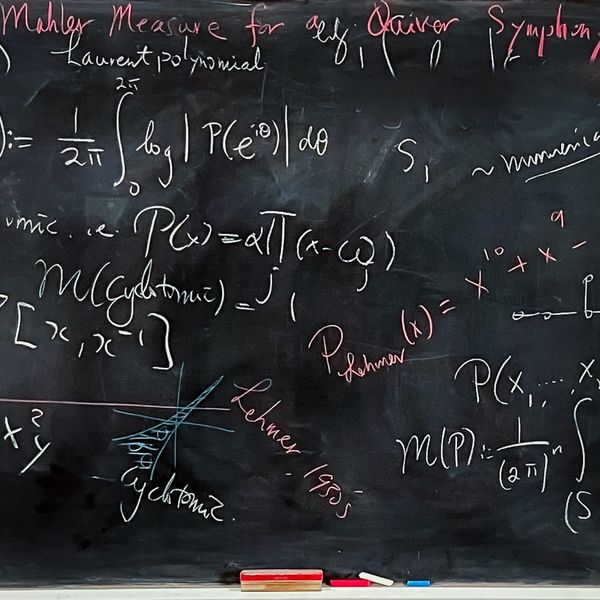 Mahler Measure for a Quiver Symphony
) Laurent polynomial
):= 1/2π ∫₀^2π log | P(e^iθ) | dθ
S₁ ~ Numerical
omic. i.e. P(x) = α∏(x-ω_j)
M(Cyclotomic) = 1
[x, x⁻¹]
P_Lehmer(x) = x¹⁰ + x⁹ -
P(x₁, ..., x
x² y
M(P) := 1/(2π)ⁿ ∫
(S
Lehmer - 1930s
- Cyclotomic.